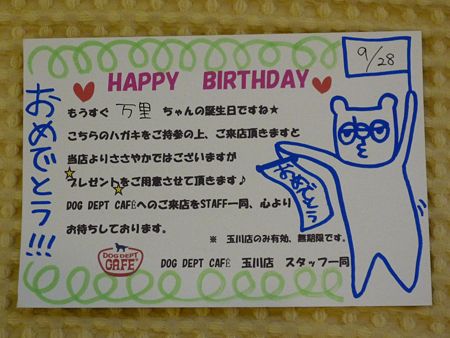 9/28
HAPPY BIRTHDAY
もうすぐ 万里 ちゃんの誕生日ですね★
こちらのハガキをご持参の上、ご来店頂きますと
当店よりささやかではございますが
プレゼントをご用意させて頂きます♪
DOG DEPT CAFÉへのご来店をSTAFF一同、心より
お待ちしております。
※ 玉川店のみ有効、無期限です。
DOG DEPT CAFÉ 玉川店 スタッフ一同
おめでとう!!!
おめでとう
DOG DEPT
CAFE